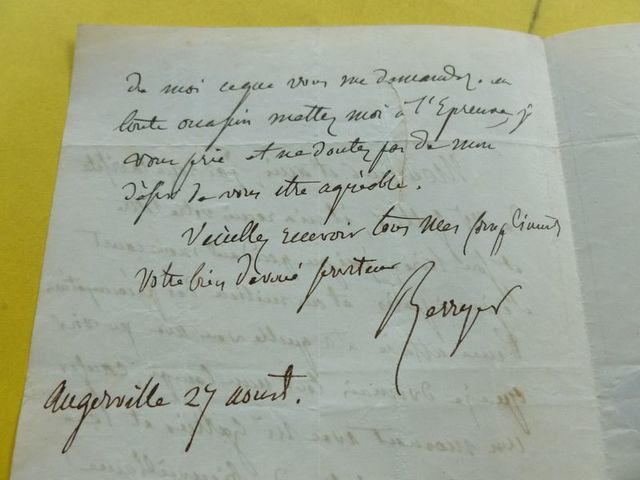 de moi ce que vous me demandez. en
toute occasion mettez moi à l'Epreuve, je
vous prie et ne doutez pas de mon
désir de vous être agréable.
Veuillez recevoir tous mes compliments
Votre bien dévoué serviteur
Berryer
Augerville 27 aoust.